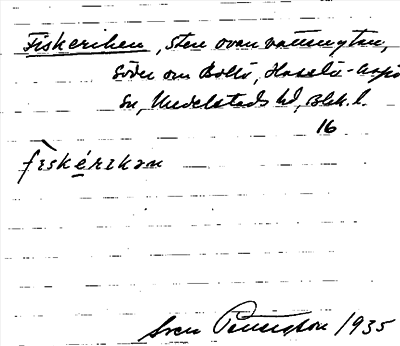 Fiskeriken, sten ovan vattenytan,
söder om Boltö, Hasslö-Aspö
sn, Medelstads hd, Blek. l.
16
fiskérikən
Sven Bengtson 1935